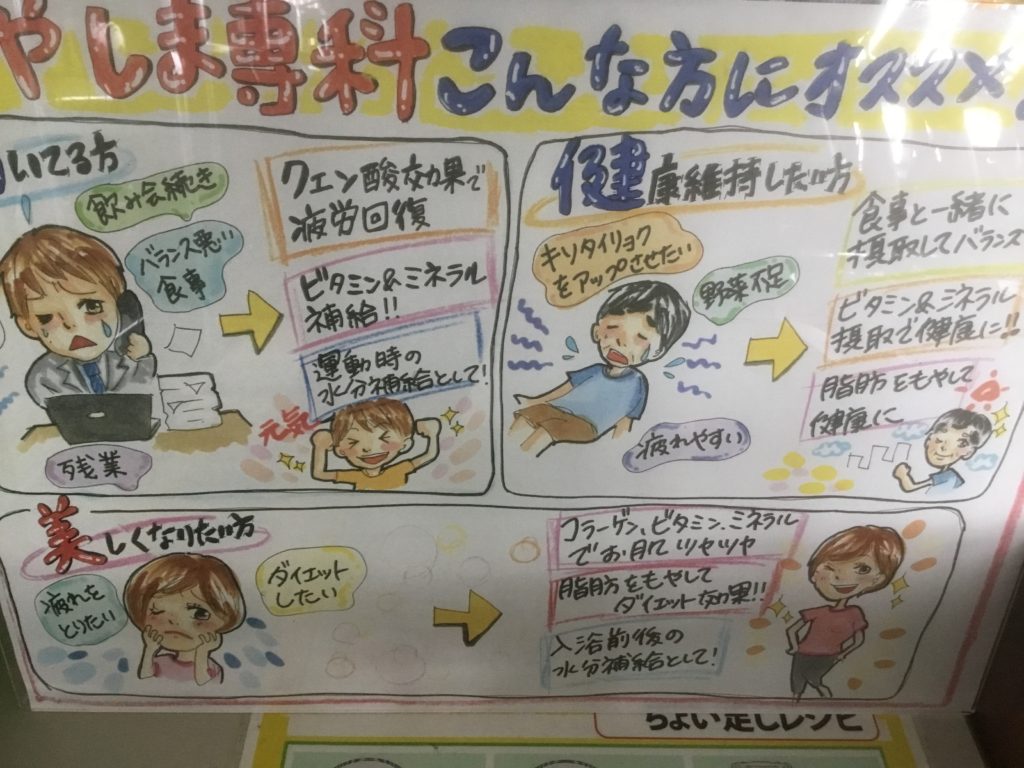 やしま専科 こんな方にオススメ
いてる方
飲み会続き
バランス悪い
食事
残業
クエン酸効果で
疲労回復
ビタミン&ミネラル
補給!!
運動時の
水分補給として!
元気
健康維持したい方
キソタイリョク
をアップさせたい
野菜不足
疲れやすい
食事と一緒に
摂取してバランス
ビタミン&ミネラル
摂取で健康に!!
脂肪をもやして
健康に
美しくなりたい方
疲れを
とりたい
ダイエット
したい
コラーゲン、ビタミン、ミネラル
でお肌ツヤツヤ
脂肪をもやして
ダイエット効果!!
入浴前後の
水分補給として!
ちょい足しレシピ